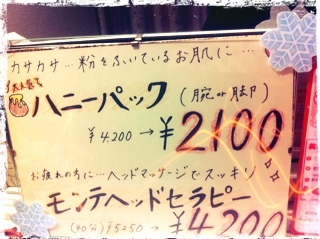 カサカサ…粉をふいているお肌に…
ハニーパック (腕or脚)
¥4.200→¥2100
お疲れの方に…ヘッドマッサージでスッキリ
モンテヘッドセラピー
(40分)¥5250→¥4200